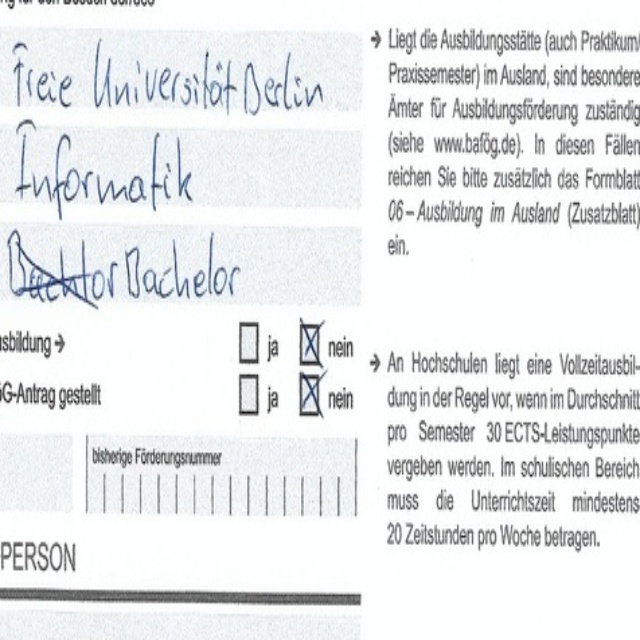 Freie Universität Berlin
Informatik
Bachelor
sbildung → ja nein
G-Antrag gestellt ja nein
bisherige Förderungsnummer
PERSON
→ Liegt die Ausbildungsstätte (auch Praktikum/
Praxissemester) im Ausland, sind besondere
Ämter für Ausbildungsförderung zuständig
(siehe www.bafög.de). In diesen Fällen
reichen Sie bitte zusätzlich das Formblatt
06 – Ausbildung im Ausland (Zusatzblatt)
ein.
→ An Hochschulen liegt eine Vollzeitausbil-
dung in der Regel vor, wenn im Durchschnitt
pro Semester 30 ECTS-Leistungspunkte
vergeben werden. Im schulischen Bereich
muss die Unterrichtszeit mindestens
20 Zeitstunden pro Woche betragen.